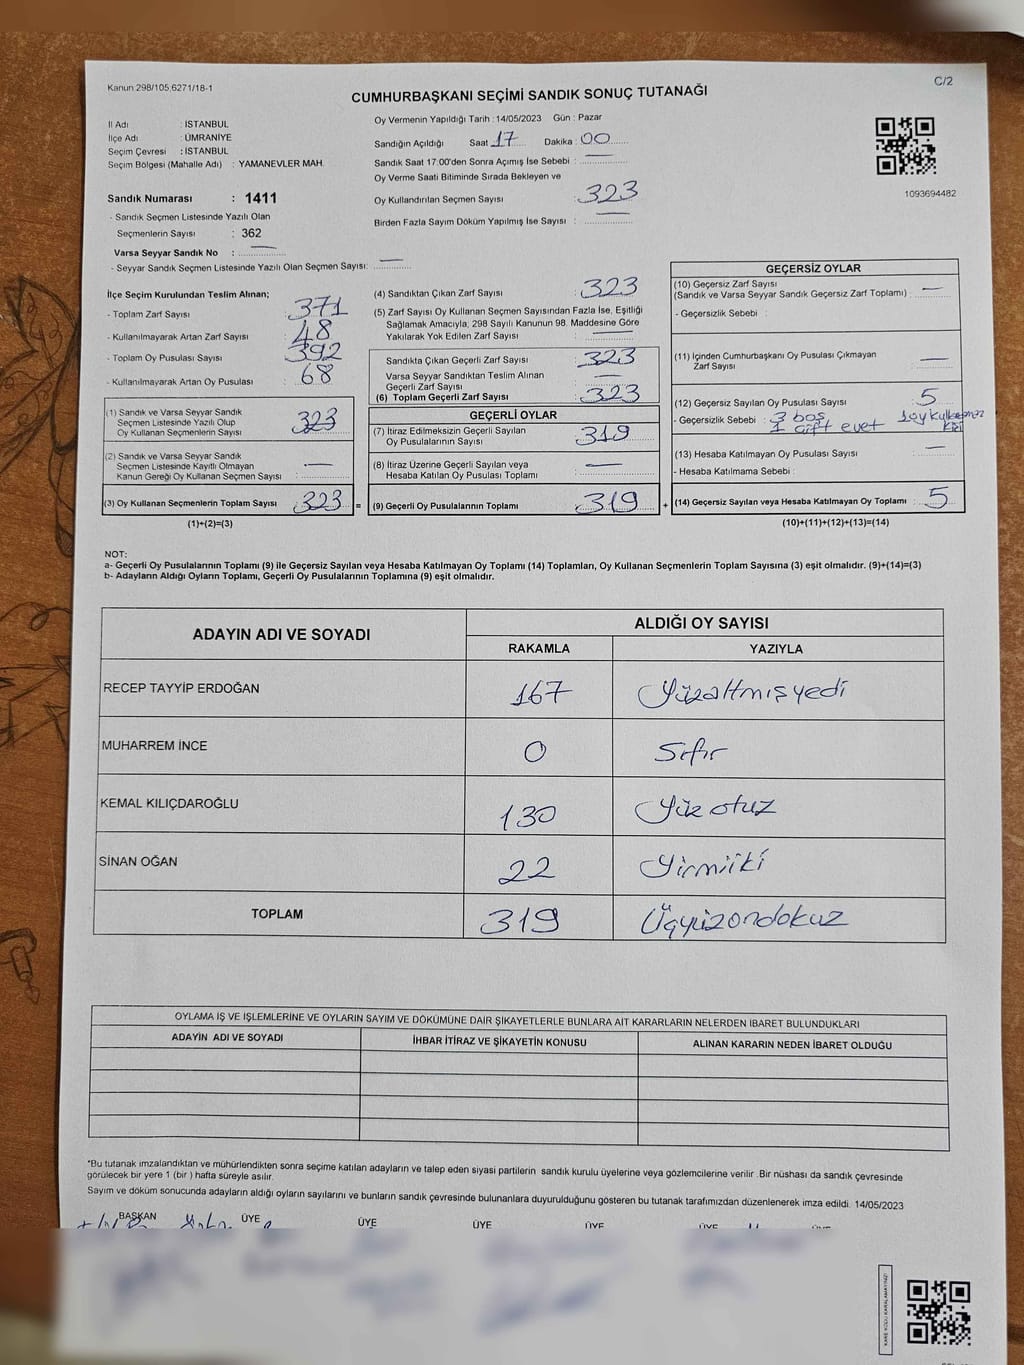 Kanun 298/105,6271/18-1
C/2
CUMHURBAŞKANI SEÇİMİ SANDIK SONUÇ TUTANAĞI
İl Adı : İSTANBUL
İlçe Adı : ÜMRANİYE
Seçim Çevresi : İSTANBUL
Seçim Bölgesi (Mahalle Adı) : YAMANEVLER MAH.
Sandık Numarası : 1411
- Sandık Seçmen Listesinde Yazılı Olan
Seçmenlerin Sayısı : 362
Varsa Seyyar Sandık No :
- Seyyar Sandık Seçmen Listesinde Yazılı Olan Seçmen Sayısı:
Oy Vermenin Yapıldığı Tarih : 14/05/2023 Gün : Pazar
Sandığın Açıldığı Saat 17 Dakika : 00
Sandık Saat 17:00'den Sonra Açılmış İse Sebebi :
Oy Verme Saati Bitiminde Sırada Bekleyen ve
Oy Kullandırılan Seçmen Sayısı : 323
Birden Fazla Sayım Döküm Yapılmış İse Sayısı :
1093694482
İlçe Seçim Kurulundan Teslim Alınan;
- Toplam Zarf Sayısı : 371
- Kullanılmayarak Artan Zarf Sayısı : 48
- Toplam Oy Pusulası Sayısı : 392
- Kullanılmayarak Artan Oy Pusulası : 68
(1) Sandık ve Varsa Seyyar Sandık
Seçmen Listesinde Yazılı Olup
Oy Kullanan Seçmenlerin Sayısı : 323
(2) Sandık ve Varsa Seyyar Sandık
Seçmen Listesinde Kayıtlı Olmayan
Kanun Gereği Oy Kullanan Seçmen Sayısı :
(3) Oy Kullanan Seçmenlerin Toplam Sayısı : 323 =
(1)+(2)=(3)
(4) Sandıktan Çıkan Zarf Sayısı : 323
(5) Zarf Sayısı Oy Kullanan Seçmen Sayısından Fazla İse, Eşitliği
Sağlamak Amacıyla, 298 Sayılı Kanunun 98. Maddesine Göre
Yakılarak Yok Edilen Zarf Sayısı :
Sandıkta Çıkan Geçerli Zarf Sayısı : 323
Varsa Seyyar Sandıktan Teslim Alınan
Geçerli Zarf Sayısı :
(6) Toplam Geçerli Zarf Sayısı : 323
GEÇERLİ OYLAR
(7) İtiraz Edilmeksizin Geçerli Sayılan
Oy Pusulalarının Sayısı : 319
(8) İtiraz Üzerine Geçerli Sayılan veya
Hesaba Katılan Oy Pusulası Toplamı :
(9) Geçerli Oy Pusulalarının Toplamı : 319 +
GEÇERSİZ OYLAR
(10) Geçersiz Zarf Sayısı
(Sandık ve Varsa Seyyar Sandık Geçersiz Zarf Toplamı) :
- Geçersizlik Sebebi :
(11) İçinden Cumhurbaşkanı Oy Pusulası Çıkmayan
Zarf Sayısı :
(12) Geçersiz Sayılan Oy Pusulası Sayısı : 5
- Geçersizlik Sebebi : 3 boş
1 çift evet
(13) Hesaba Katılmayan Oy Pusulası Sayısı :
- Hesaba Katılmama Sebebi :
(14) Geçersiz Sayılan veya Hesaba Katılmayan Oy Toplamı : 5
(10)+(11)+(12)+(13)=(14)
NOT:
a- Geçerli Oy Pusulalarının Toplamı (9) ile Geçersiz Sayılan veya Hesaba Katılmayan Oy Toplamı (14) Toplamları, Oy Kullanan Seçmenlerin Toplam Sayısına (3) eşit olmalıdır. (9)+(14)=(3)
b- Adayların Aldığı Oyların Toplamı, Geçerli Oy Pusulalarının Toplamına (9) eşit olmalıdır.
ADAYIN ADI VE SOYADI
ALDIĞI OY SAYISI
RAKAMLA YAZIYLA
RECEP TAYYİP ERDOĞAN 167 Yüzaltmışyedi
MUHARREM İNCE 0 Sıfır
KEMAL KILIÇDAROĞLU 130 Yüzotuz
SİNAN OĞAN 22 Yirmiiki
TOPLAM 319 Üçyüzondokuz
OYLAMA İŞ VE İŞLEMLERİNE VE OYLARIN SAYIM VE DÖKÜMÜNE DAİR ŞİKAYETLERLE BUNLARA AİT KARARLARIN NELERDEN İBARET BULUNDUKLARI
ADAYIN ADI VE SOYADI İHBAR İTİRAZ VE ŞİKAYETİN KONUSU ALINAN KARARIN NEDEN İBARET OLDUĞU
*Bu tutanak imzalandıktan ve mühürlendikten sonra seçime katılan adayların ve talep eden siyasi partilerin sandık kurulu üyelerine veya gözlemcilerine verilir. Bir nüshası da sandık çevresinde
görülecek bir yere 1 (bir) hafta süreyle asılır.
Sayım ve döküm sonucunda adayların aldığı oyların sayılarını ve bunların sandık çevresinde bulunanlara duyurulduğunu gösteren bu tutanak tarafımızdan düzenlenerek imza edildi. 14/05/2023
BAŞKAN ÜYE ÜYE ÜYE ÜYE ÜYE